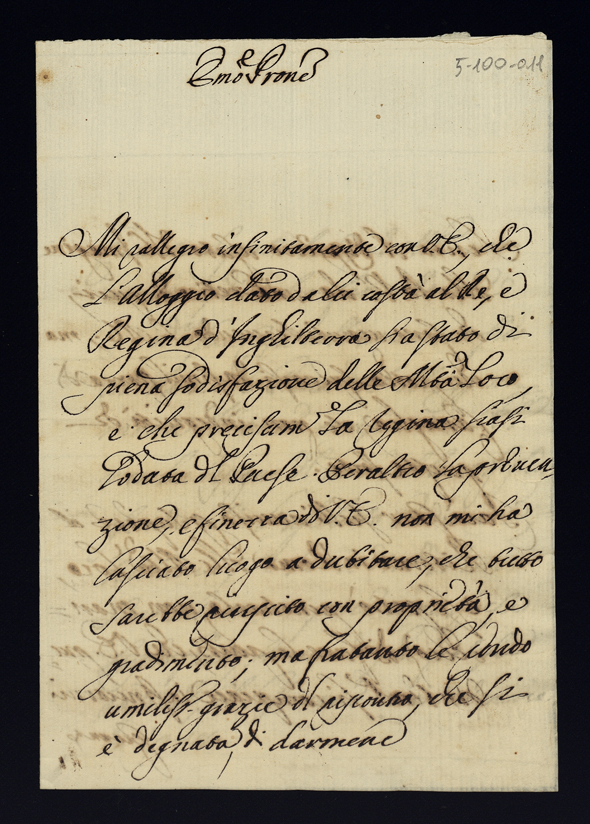 Em̃o e Prone
5-100-011
Mi rallegro infinitamente con V.E., che
l'Alloggio dato da lei costà al Re, e
Regina d'Inghilterra sia stato di
piena sodisfazione delle Mtà Loro,
e che precisamte la Regina siasi
lodata del Paese. Peraltro la preven-
zione, e finezza di V.E. non mi ha
lasciato luogo a dubitare, che tutto
sarebbe riuscito con proprietà, e
gradimento; ma frattanto le rendo
umiliss. grazie del riscontro, che si
è degnata di darmene